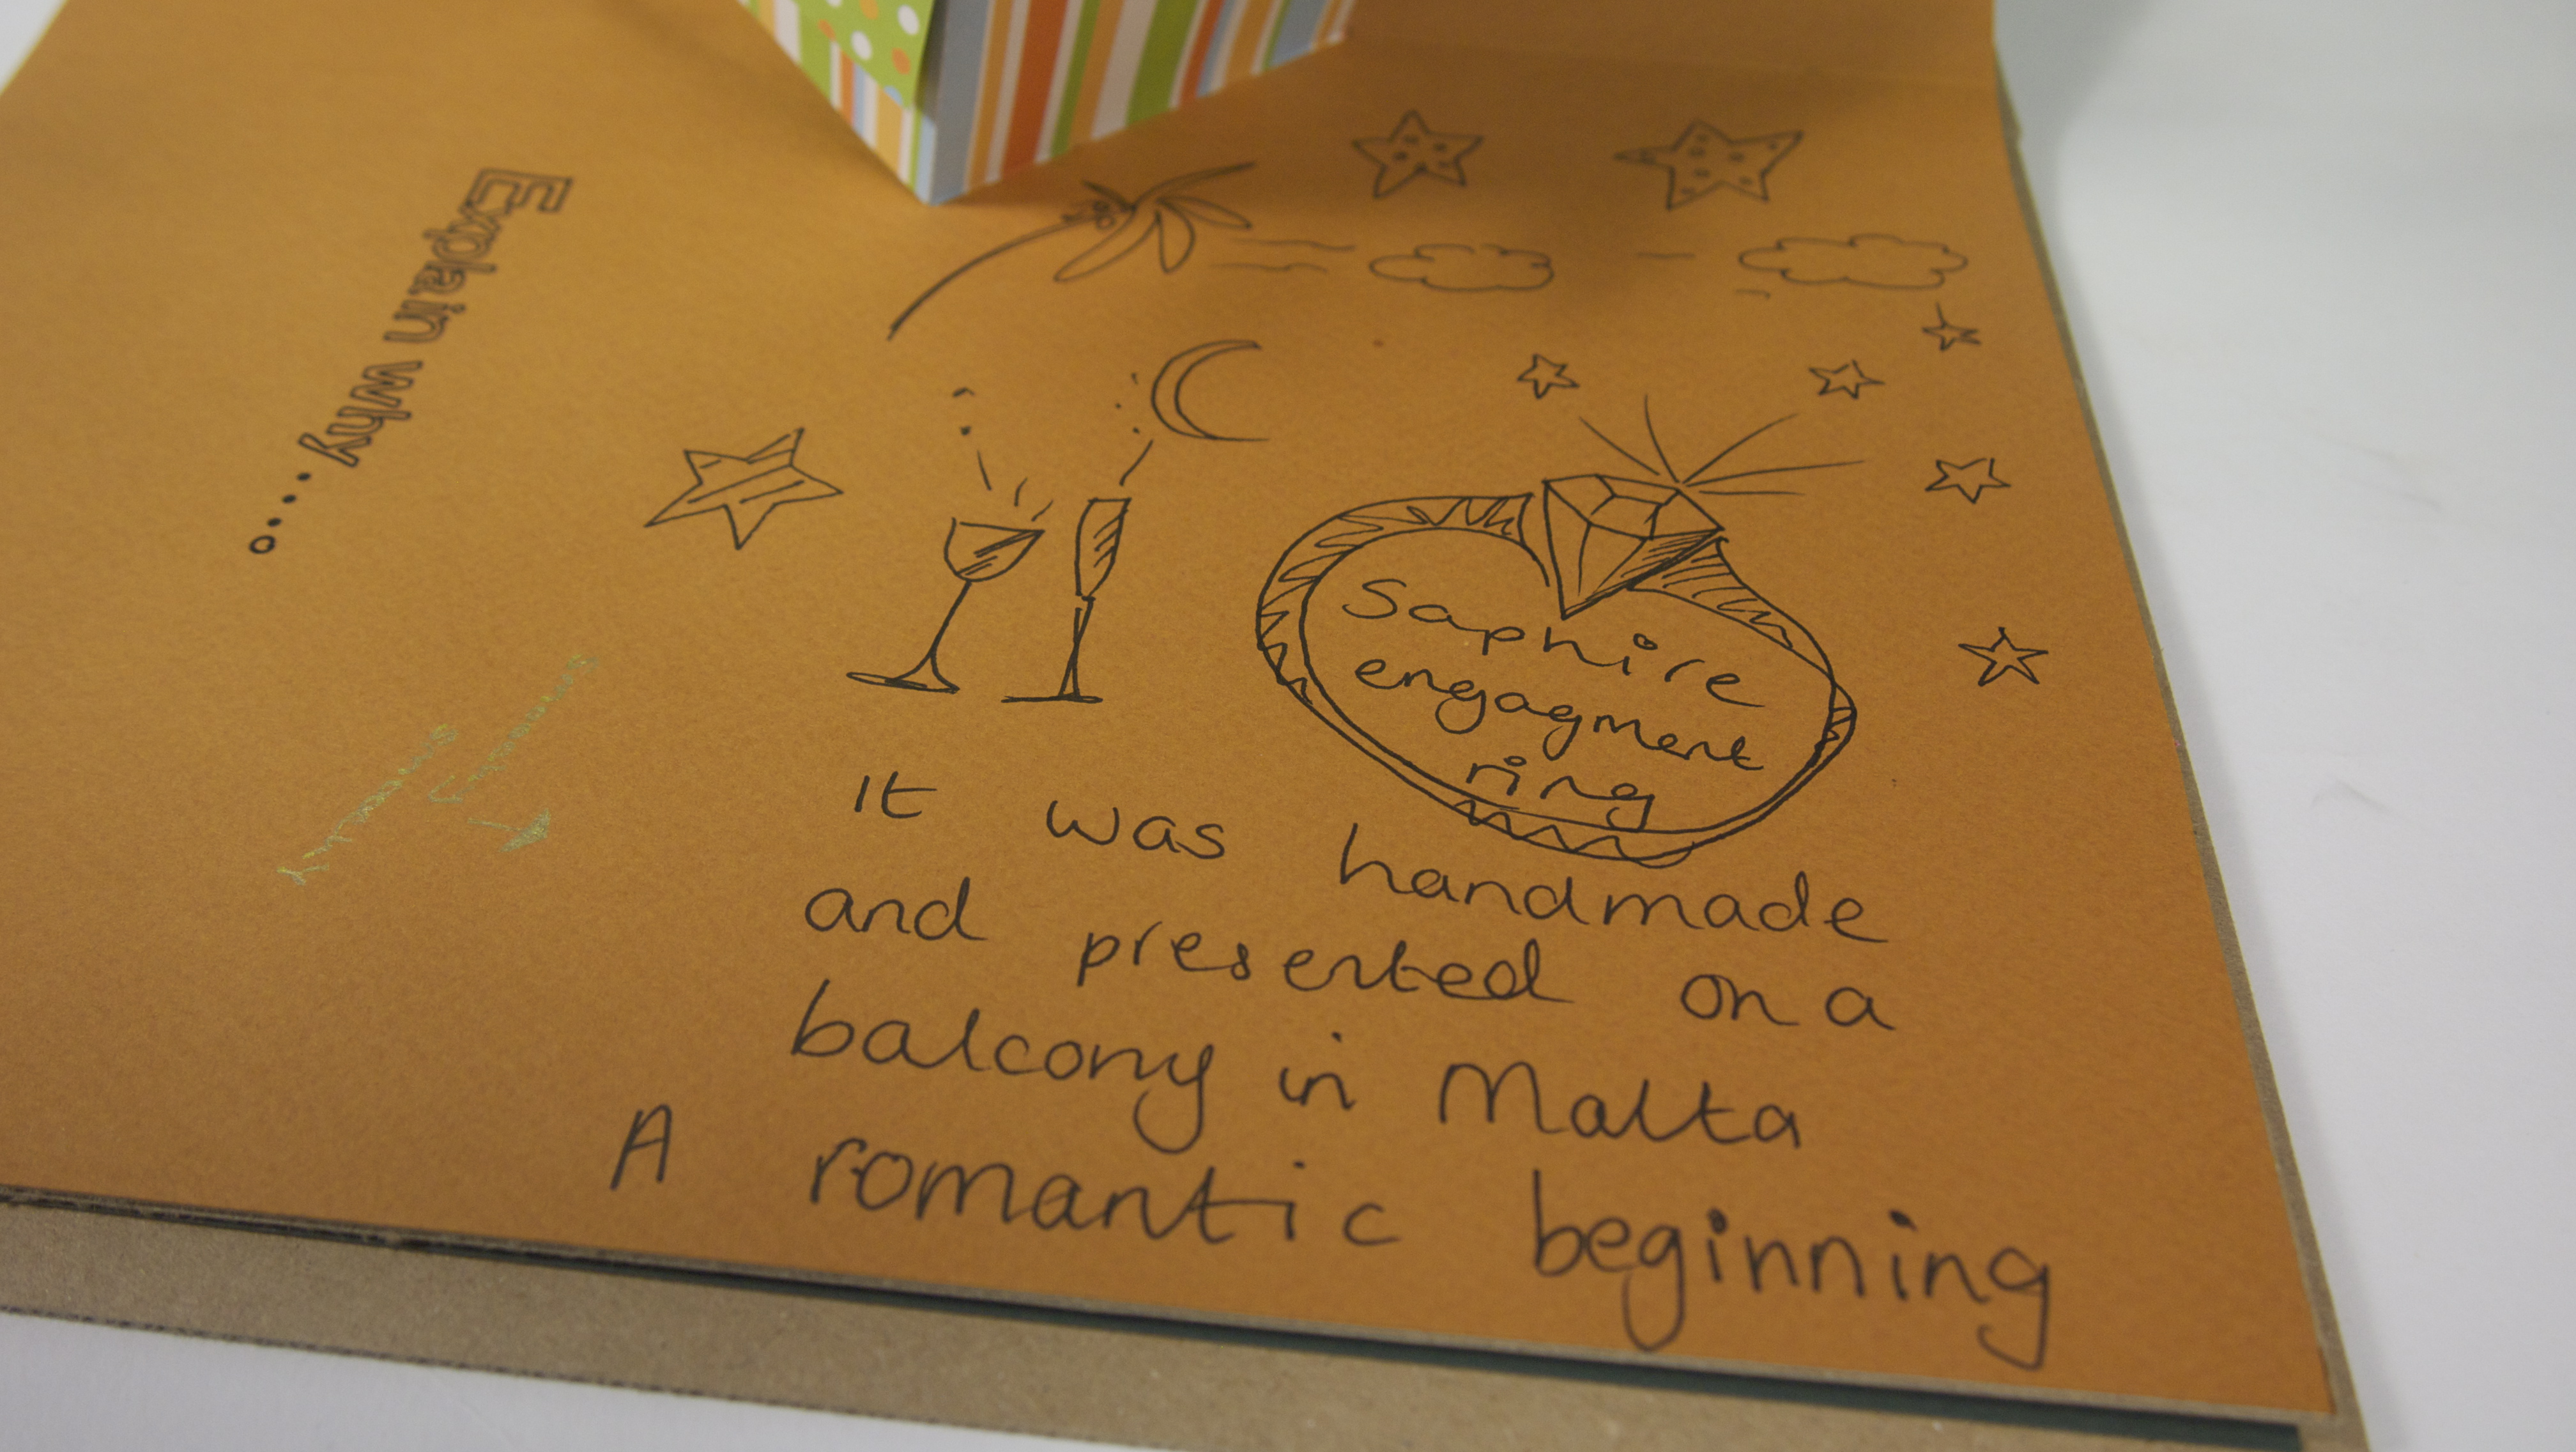 Explain why....
Saphire
engagment
ring
It was handmade
and presented on a
balcony in Malta
A romantic beginning